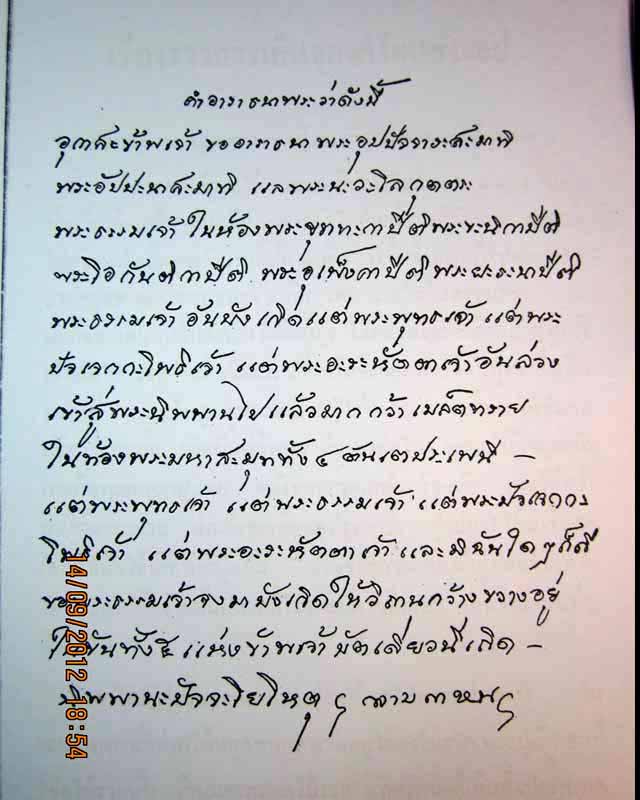 คำอาราธนาพระว่าดังนี้
อุกาสะข้าพเจ้า ขออาราธนา พระอุปปัจจาระสะมาทิ
พระอัปปะนาสะมาทิ แลพระนะวะโลกุตตระ
พระธรรมเจ้า ในห้องพระขุททะกาปีติ พระขะนิกาปีติ
พระโอกันติกาปีติ พระอุเพ็งคาปีติ พระผะระนาปีติ
พระธรรมเจ้า อันบังเกิดแต่พระพุทธเจ้า แต่พระ
ปัจเจกกะโพธิเจ้า แต่พระอะระหัตตาเจ้าอันล่วง
เข้าสู่พระนิพพานไปแล้วมากกว่า เมล็ดทราย
ในท้องพระมหาสะมุททั้ง ๔ ประเพนี –
แต่พระพุทธเจ้า แต่พระธรรมเจ้า แต่พระปัจเจกกะ
โพธิเจ้า แต่พระอะระหัตตาเจ้า และมีฉันใดๆก็ดี
ขอพระธรรมเจ้าจงมาบังเกิดให้วิถานกว้างขวางอยู่
ในขันทั้ง ๕ แห่งข้าพเจ้า บัดเดี๋ยวนี้เถิด –
นิพพานะปัจจะโยโหตุ
14/09/2012 18:54